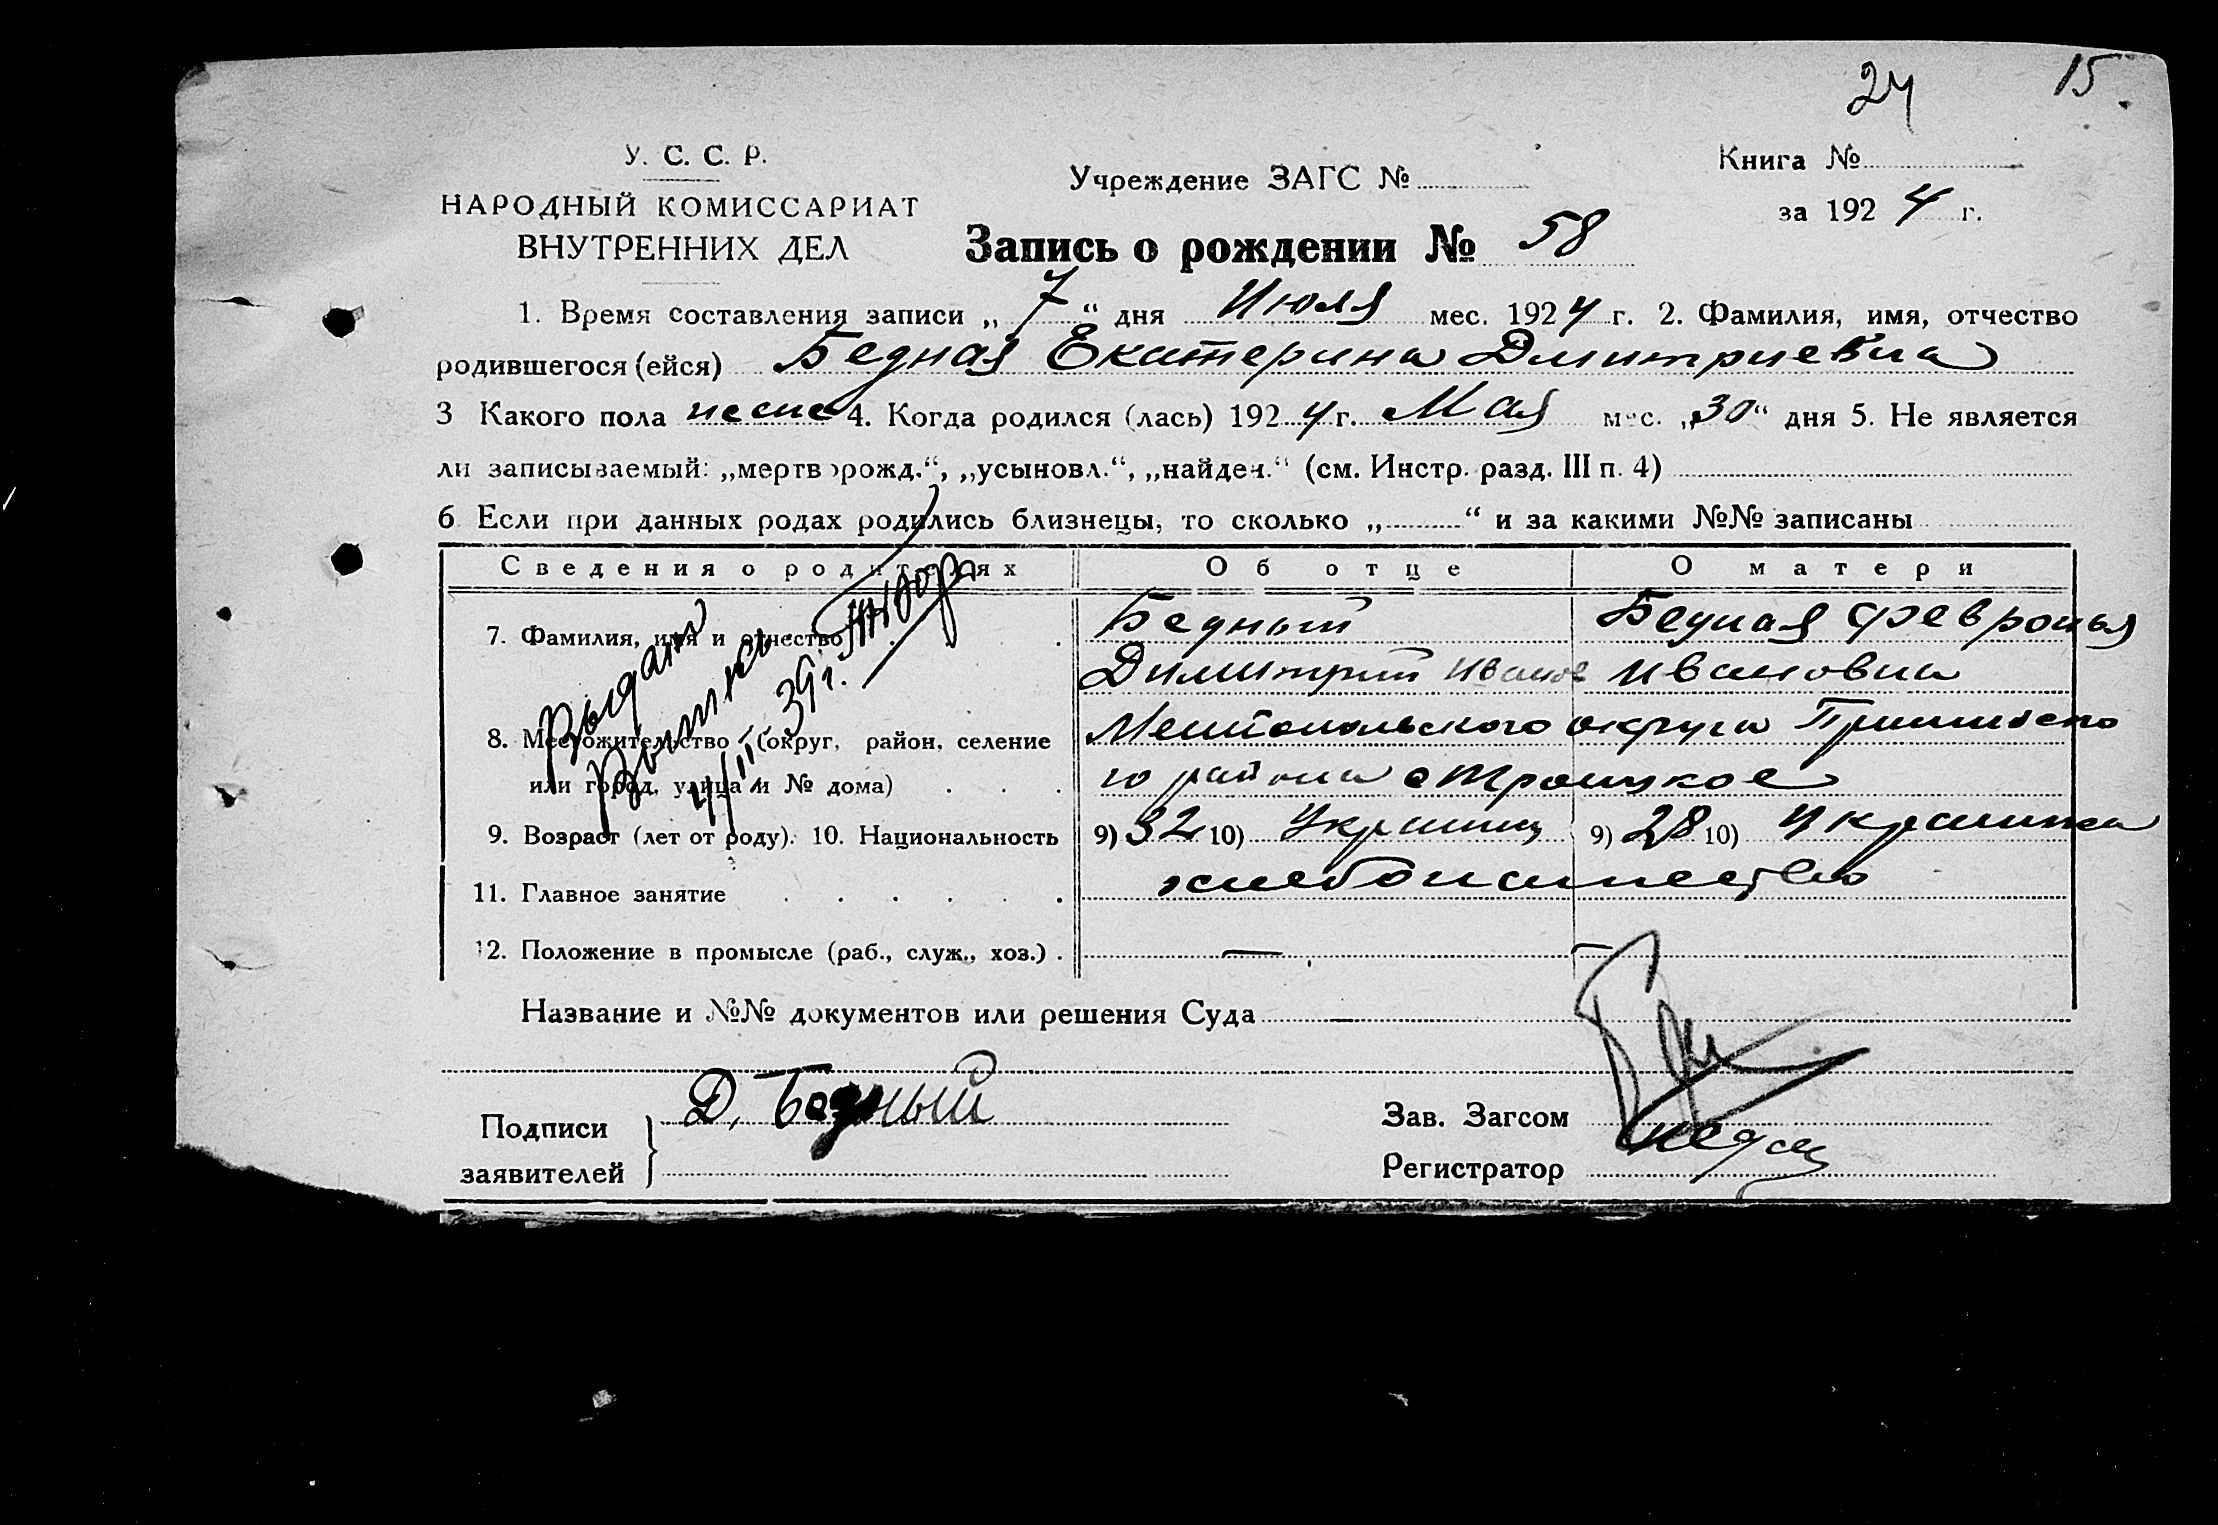 24 15.
У. С. С. Р.
НАРОДНЫЙ КОМИССАРИАТ
ВНУТРЕННИХ ДЕЛ
Учреждение ЗАГС №
Книга №
за 1924 г.
Запись о рождении № 58
1. Время составления записи „7“ дня Июля мес. 1924 г. 2. Фамилия, имя, отчество
родившегося (ейся) Бедная Екатерина Дмитриевна
3 Какого пола 4. Когда родился (лась) 1924 г. Мая мес. „30“ дня 5. Не является
ли записываемый: „мертворожд.“, „усыновл.“, „найден.“ (см. Инстр. разд. III п. 4)
6 Если при данных родах родились близнецы, то сколько „ “ и за какими №№ записаны
Сведения о родителях Об отце О матери
7. Фамилия, имя и отчество Бедный Бедная Февронья
Димитрий Иванов Ивановна
8. Местожительство (округ, район, селение Мелитопольского округа
или город, улица и № дома) го района с Троицкое
9. Возраст (лет от роду). 10. Национальность 9) 32 10) Украинец 9) 28 10) Украинка
11. Главное занятие хлебопашество
12. Положение в промысле (раб., служ., хоз.) —
Выдан
4/III-39г.
Название и №№ документов или решения Суда —
Подписи Д. Бедный Зав. Загсом
заявителей Регистратор